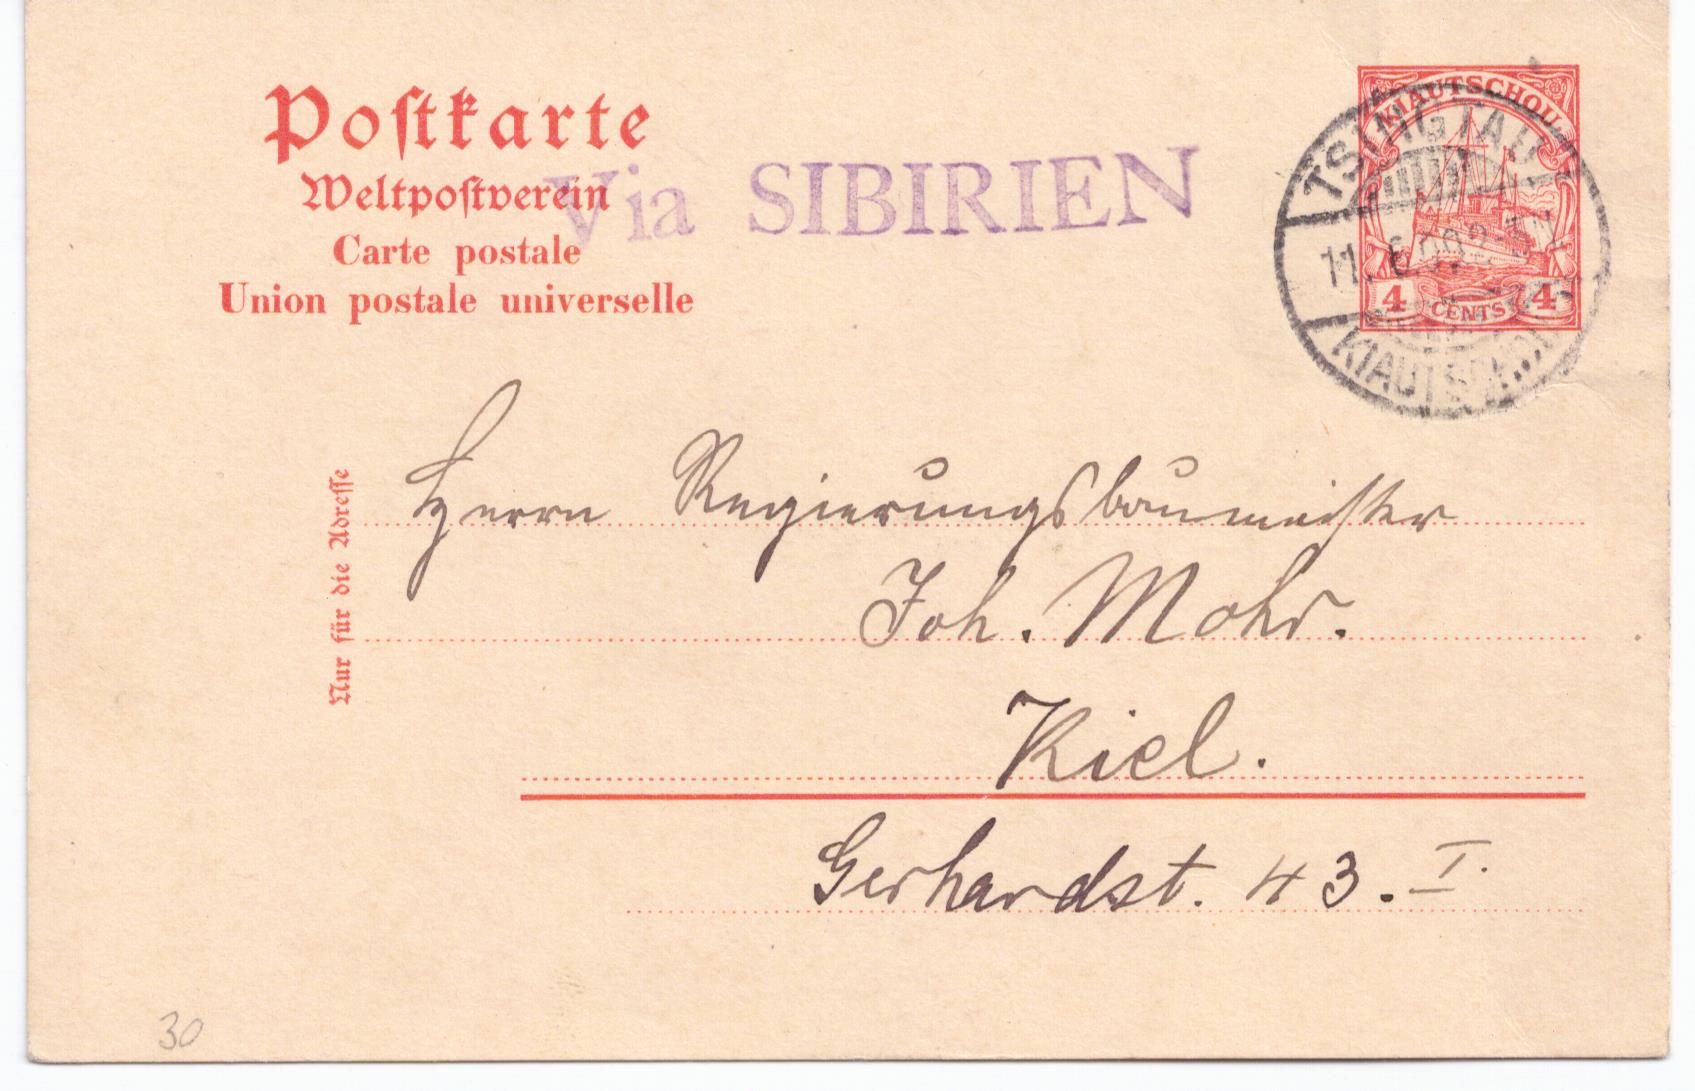 Postkarte
Weltpostverein
Carte postale
Union postale universelle
Via SIBIRIEN
KIAUTSCHOU
4 CENTS 4
TSINGTAU
11.6.09
KIAUTSCHOU
Nur für die Adresse
Herrn Regierungsbaumeister
Joh. Mohr.
Kiel.
Gerhardst. 43. I.
30